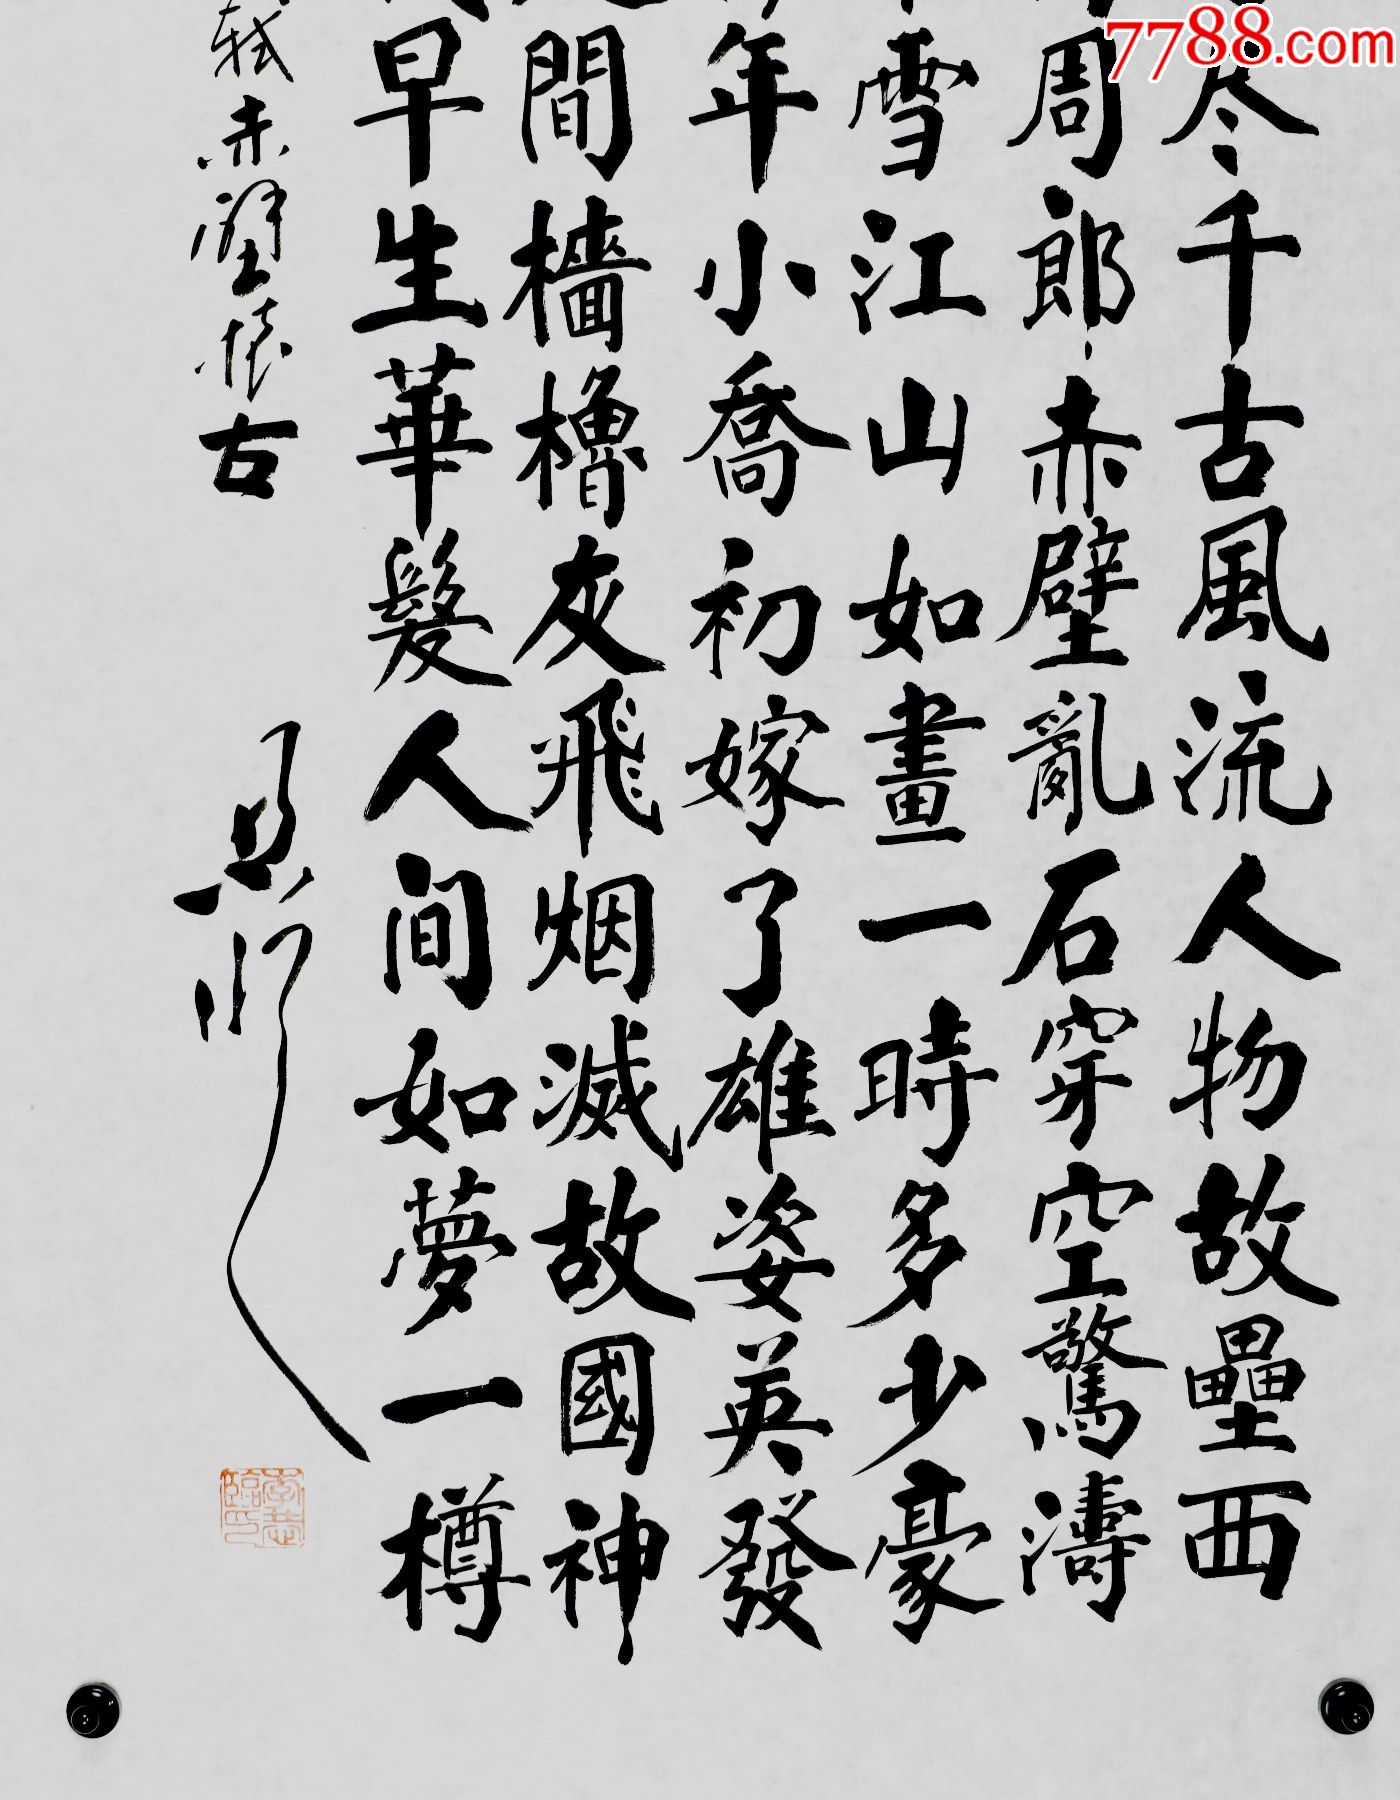 7788.com
尽千古風流人物故壘西
周郎赤壁亂石穿空驚濤
雪江山如畫一時多少豪
年小喬初嫁了雄姿英發
間檣櫓灰飛烟滅故國神
早生華髮人间如夢一樽
軾赤壁懷古